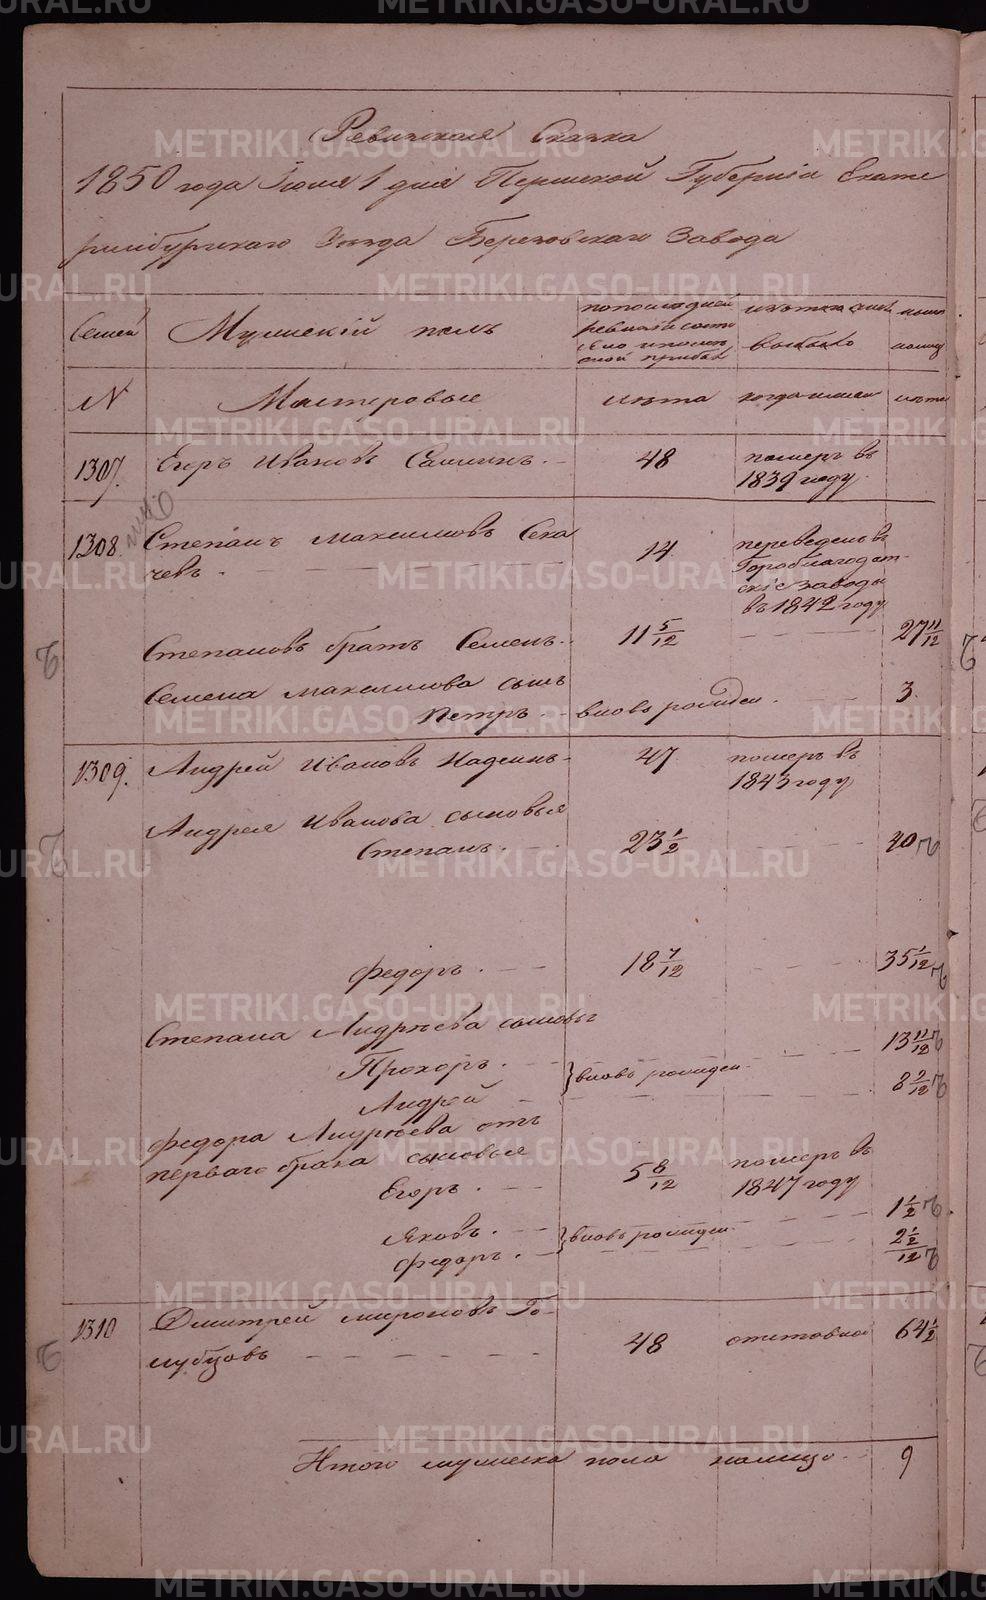 Ревизская Сказка
1850 года Июля 1 дня Пермской Губернии Екате
ринбургскаго Уезда Березовскаго Завода
Семей Мужескій полъ
по последней ревизіи состояло и после оной прибыло
изъ того числа выбыло
ныне на лицо
№ Мастеровые лета когда именно лета
1307. Егоръ Ивановъ Саминъ. 48 померъ въ
1839 году
1308. Степанъ Максимовъ Сека
чевъ. 14 переведенъ въ
Гороблагодат
скіе заводы
въ 1842 году
Степановъ братъ Семенъ. 11 5/12 27 11/12
Семена Максимова сынъ
Петръ вновь рожден. 3.
1309. Андрей Ивановъ Надеинъ 47 померъ въ
1843 году
Андрея Иванова сыновья
Степанъ. 23 1/2 40
Федоръ. 18 7/12 35 1/12
Степана Андреева сыновья
Прохоръ. 13 11/12
вновь рожден.
Андрей 8 9/12
Федора Андреева отъ
перваго брака сыновья
Егоръ. 5 8/12 померъ въ
1847 году
Яковъ. 1 1/2
вновь рожден.
Федоръ. 2 1/2/12
1310 Дмитрей Мироновъ Го-
лубцовъ 48 отставной 64 1/2
Итого мужеска пола налицо 9
METRIKI.GASO-URAL.RU